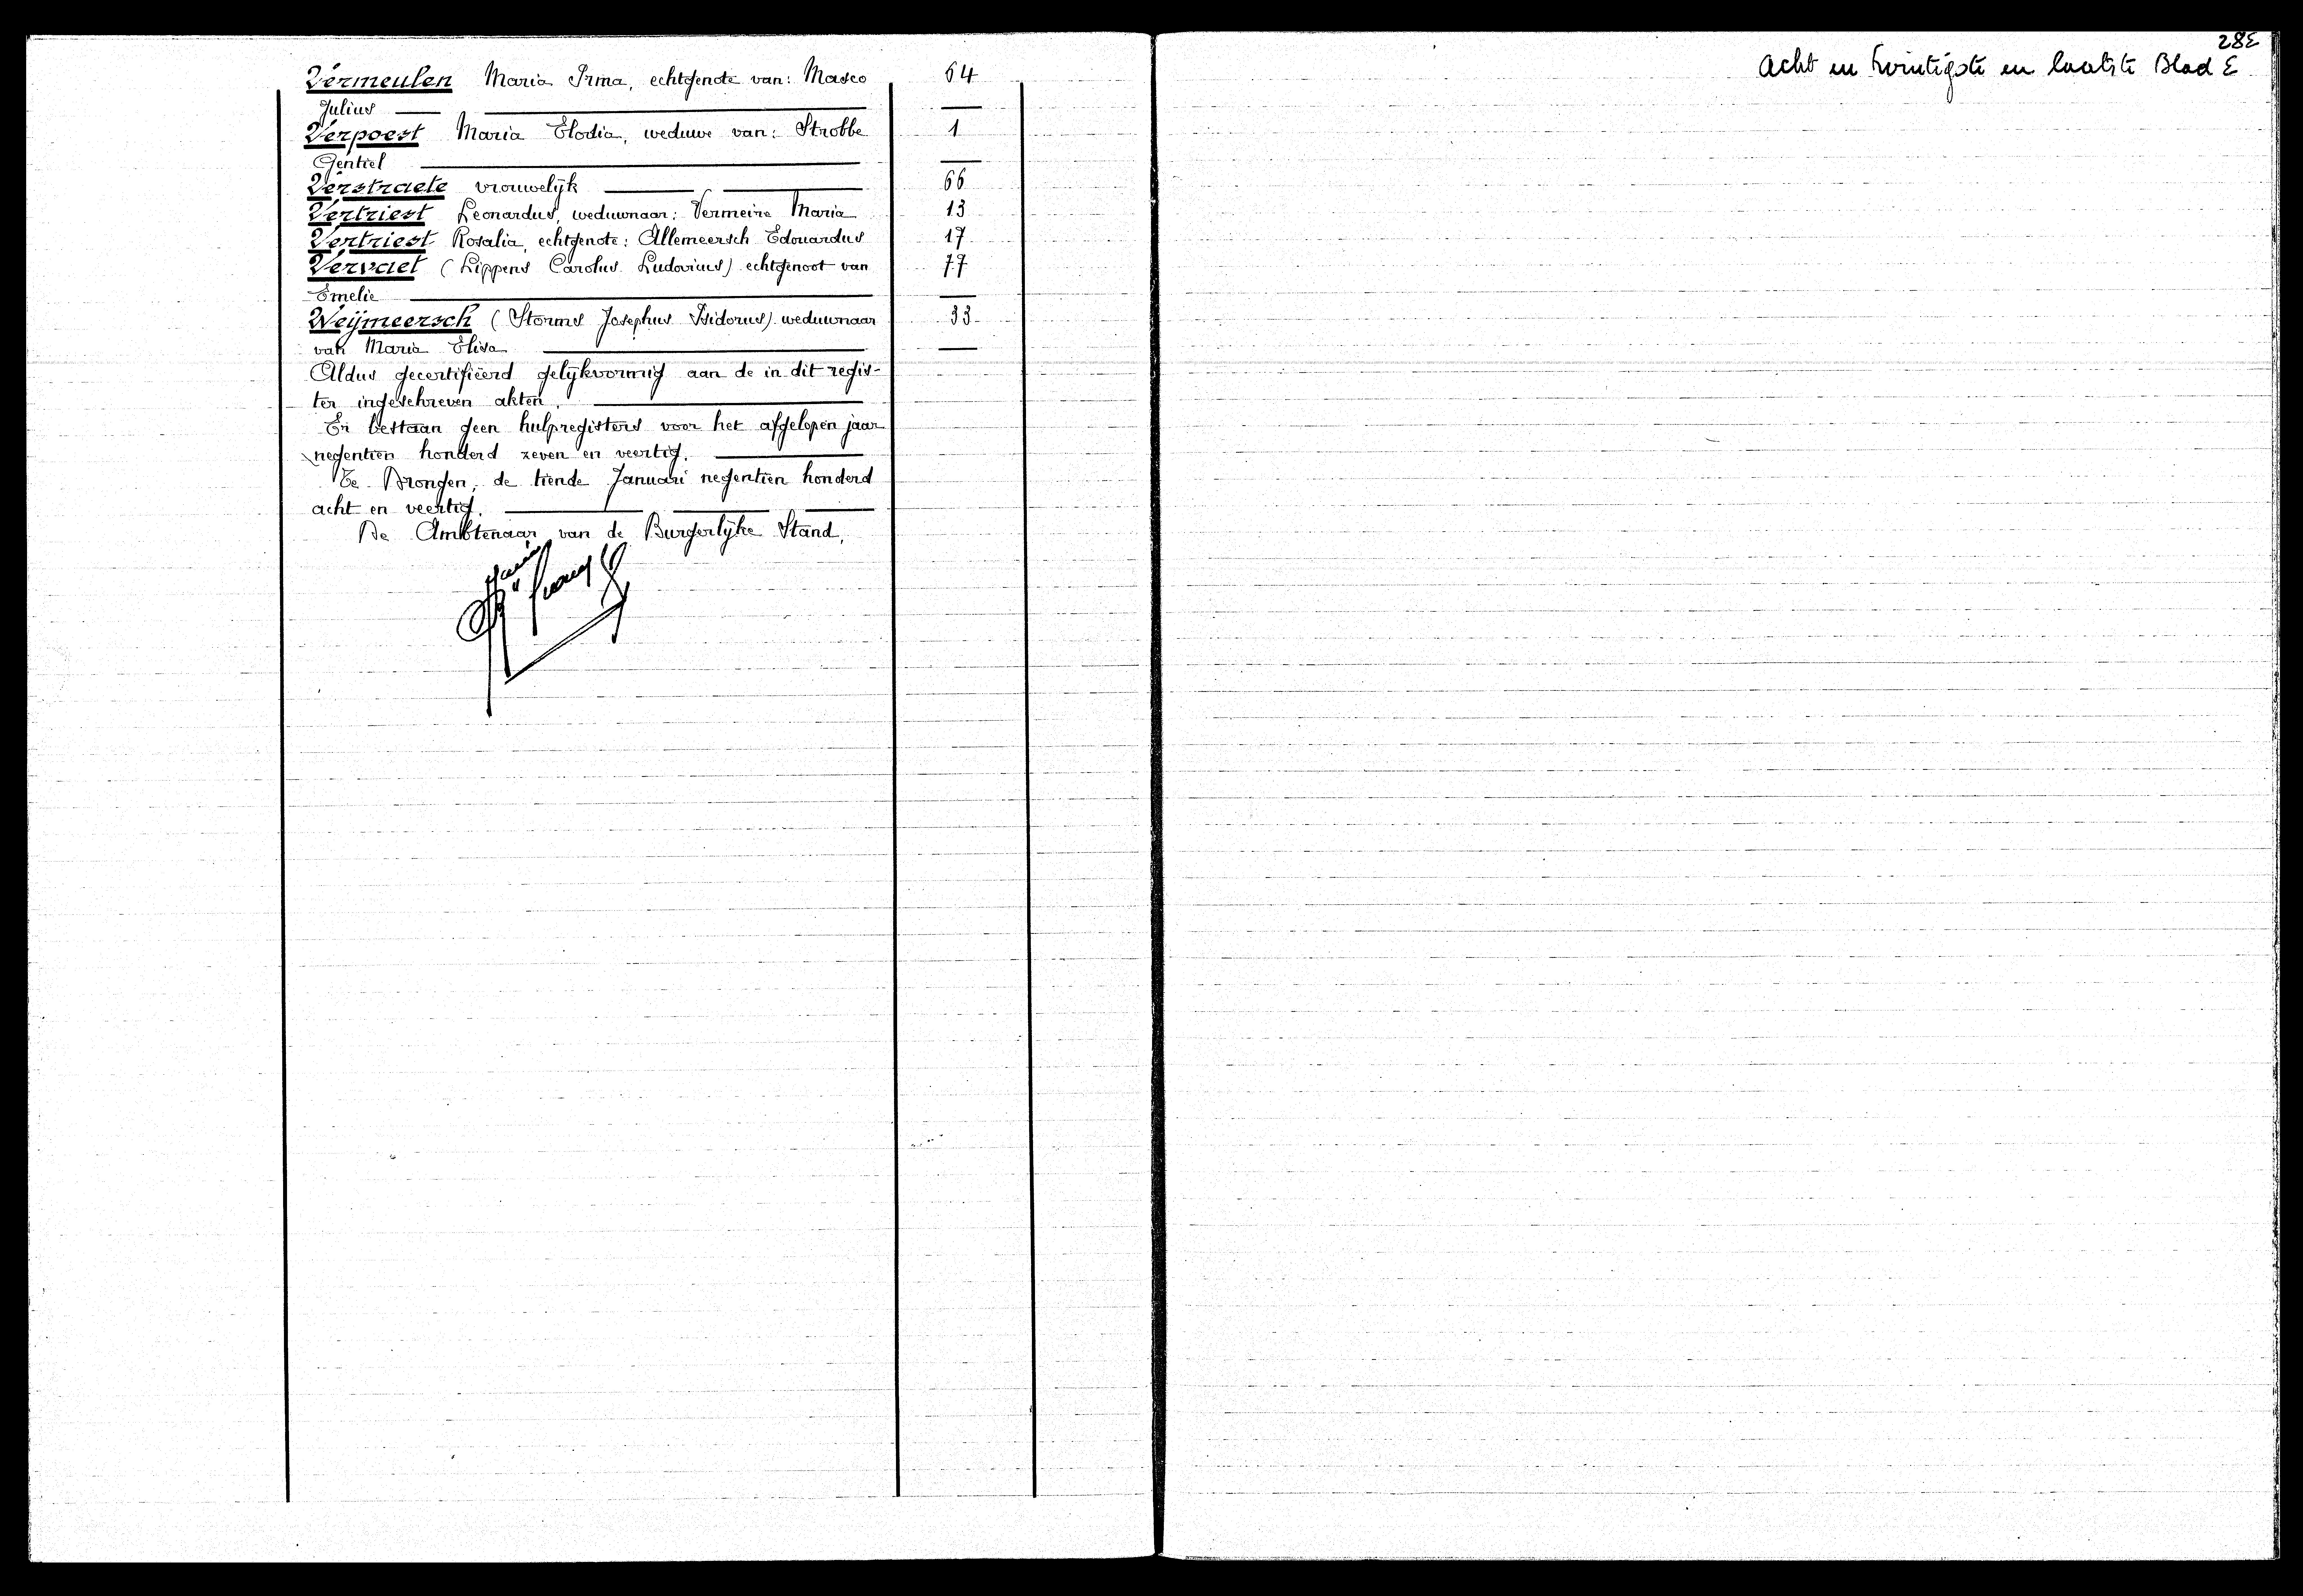 Vermeulen Maria Irma, echtgenote van: Masco 64
Julius
Verpoest Maria Elodia, weduwe van: Strobbe 1
Gentiel
Verstraete vrouwelijk 66
Vertriest Leonardus, weduwnaar: Vermeire Maria 13
Vertriest Rosalia, echtgenote: Allemeersch Edouardus 17
Vervaet (Lippens Carolus Ludovicus) echtgenoot van 77
Emelie
Weijmeersch (Storms Josephus Isidorus) weduwnaar 33
van Maria Elisa
Aldus gecertifiëerd gelijkvormig aan de in dit regis-
ter ingeschreven akten.
Er bestaan geen hulpregisters voor het afgelopen jaar
negentien honderd zeven en veertig.
Te Drongen, de tiende Januari negentien honderd
acht en veertig.
De Ambtenaar van de Burgerlijke Stand,
28E
Acht en twintigste en laatste Blad E